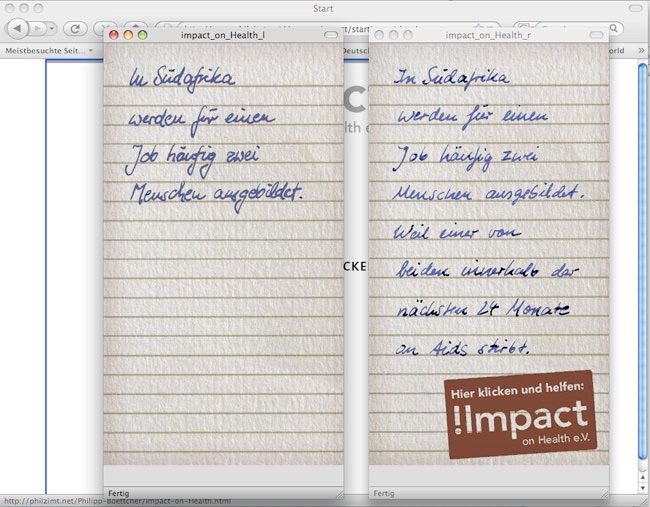 Start
impact_on_Health_l
In Südafrika
werden für einen
Job häufig zwei
Menschen ausgebildet.
Fertig
impact_on_Health_r
In Südafrika
werden für einen
Job häufig zwei
Menschen ausgebildet.
Weil einer von
beiden innerhalb der
nächsten 24 Monate
an Aids stirbt.
Hier klicken und helfen:
!Impact
on Health e.V.
Fertig
Meistbesuchte Seite...
Deutsc
orld
start/star
C
lth e
CKE
http://philzimt.net/Philipp-Boettcher/Impact-on-Health.html